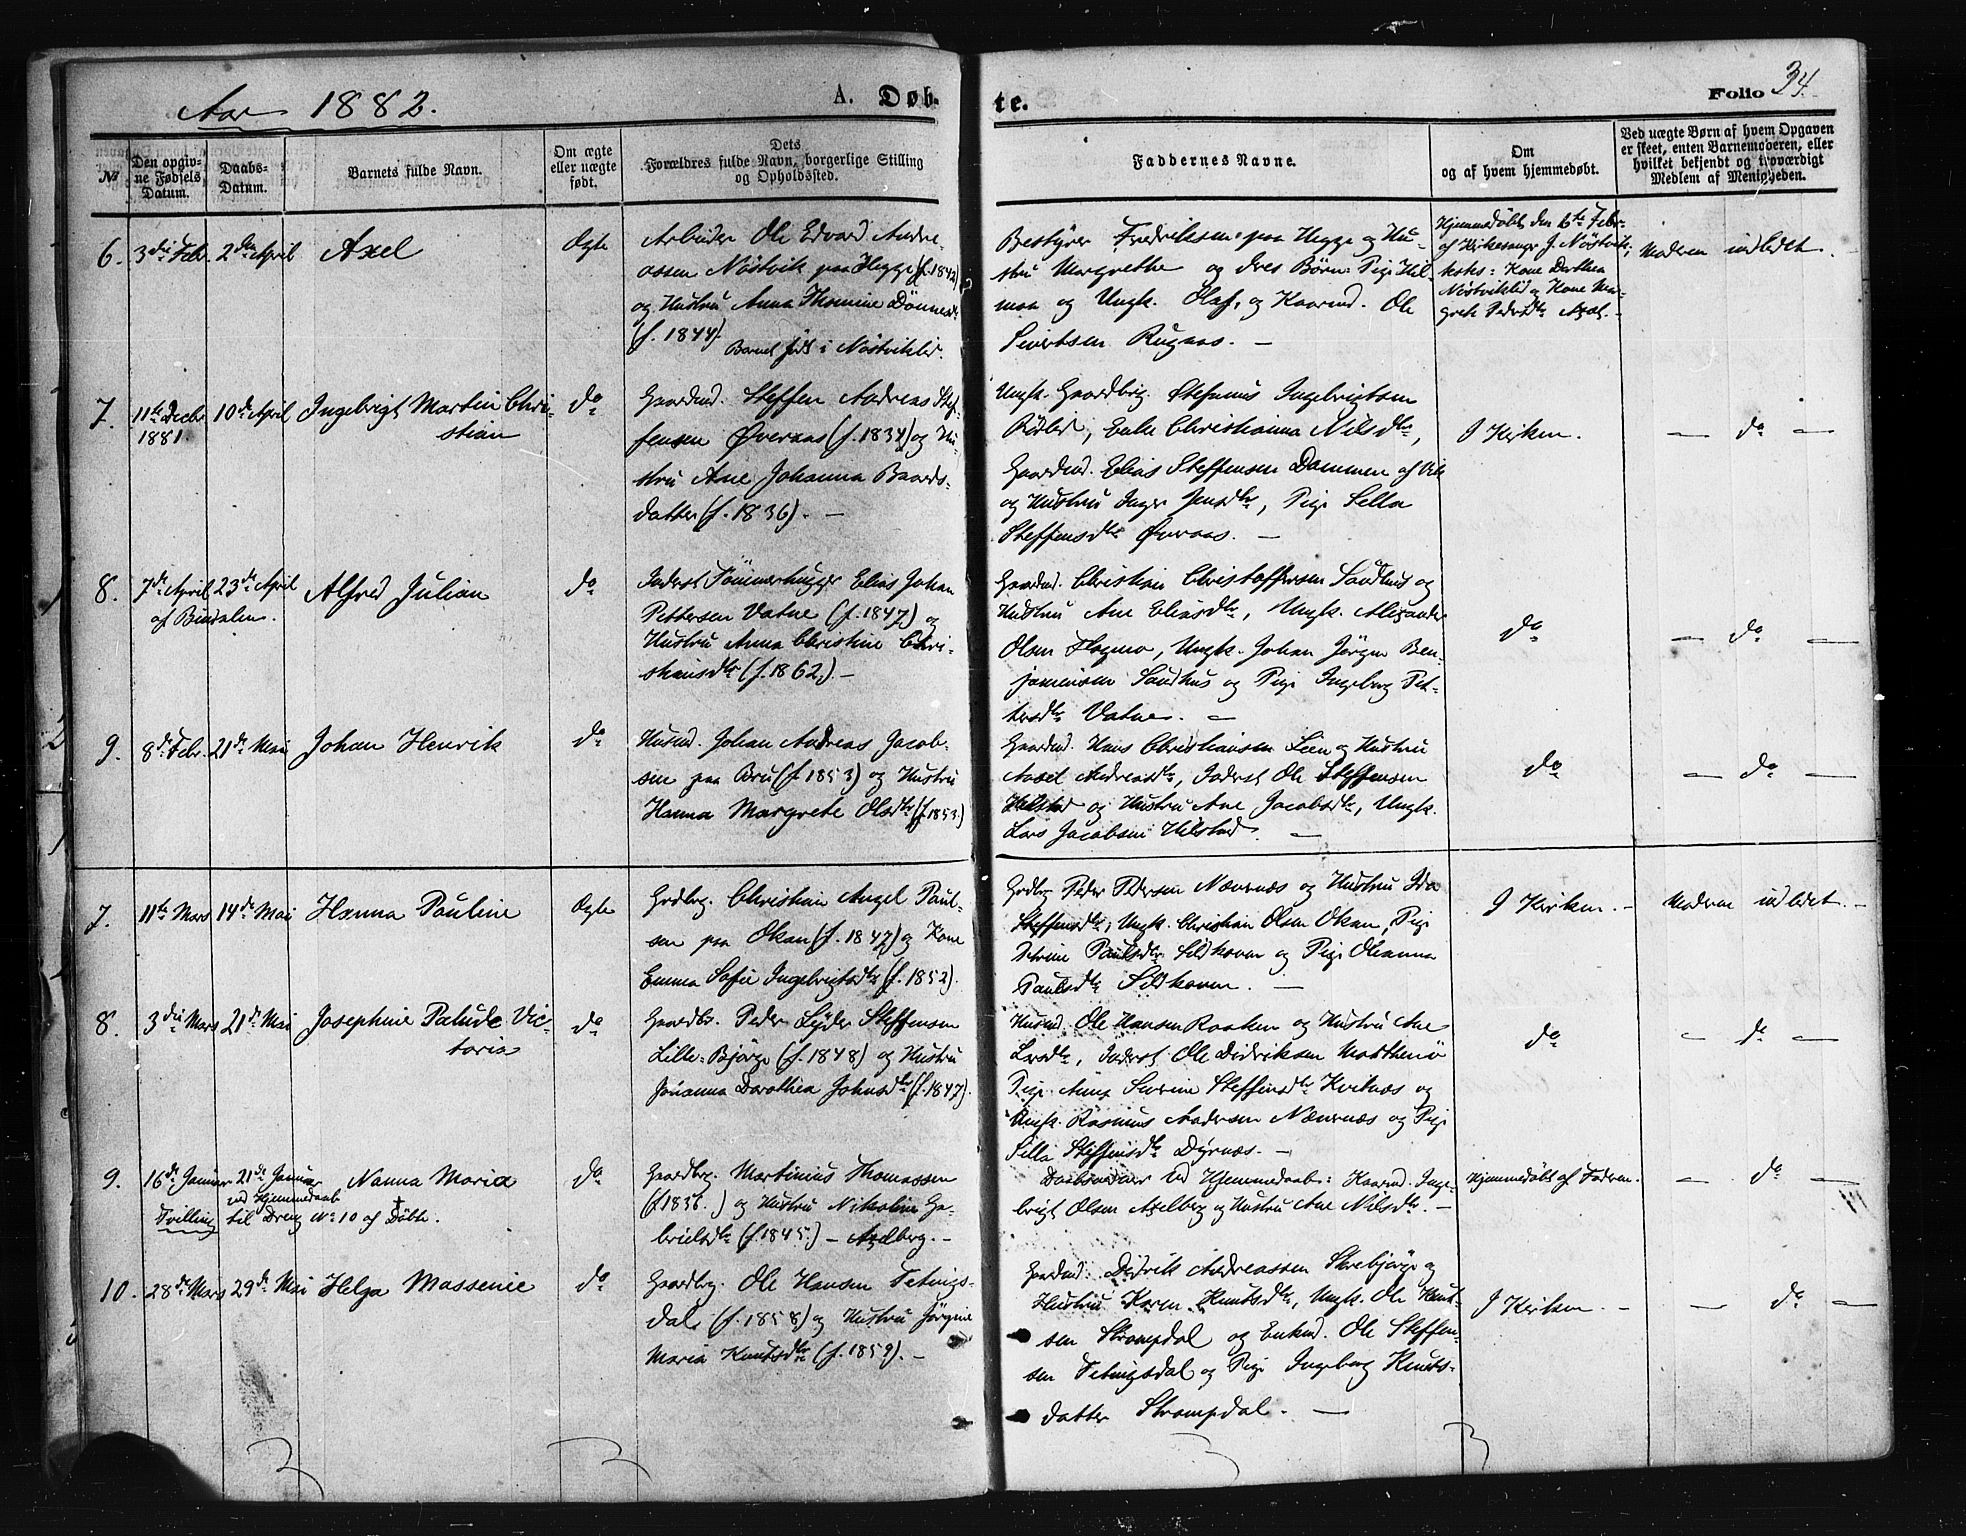 Aar 1882.
A. Døb-
te.
Folio 34.
№
Den opgiv-
ne Fødsels
Datum.
Daabs-
Datum.
Barnets fulde Navn.
Om ægte
eller uægte
født.
Dets
Forældres fulde Navn, borgerlige Stilling
og Opholdssted.
Faddernes Navne.
Om
og af hvem hjemmedøbt.
Ved uægte Børn af hvem Opgaven
er skeet, enten Barnemoderen, eller
hvilket bekjendt og troværdigt
Medlem af Menigheden.
6.
3die Febr.
2den April
Axel
Ægte
Arbeider Ole Edvard Andre-
assen Nøstvik paa Hegge (f. 1842)
og Hustru Anna Thomine Dønnesdtr
(f. 1844).
Barnet født i Nøstviklid.
Bestyrer Fredriksen paa Hegge og Hu-
stru Margrethe og dres Børn: Pige Hil-
maa og Ungk. Olaf, og Kaarmd. Ole
Sivertsen Rugaas. —
Hjemmedøbt den 6te Febr.
af Kirkesanger J. Nøstvik;
Kone Dorthea
Nøstviklid og Kone Mar-
grete Pedersdtr Axel. -
Moderen indledet.
7.
11te Decbr
1881
10de April
Ingebrigt Martin Chri-
stian
do
Gaardmd. Steffen Andreas Stef-
fensen Øveraas (f. 1834) og Hu-
stru Ane Johanna Baards-
datter (f. 1836). —
Ungk. Gaardbrg. Stefanus Ingebrigtsen
Rølid, Enke Christianna Nilsdtr,
Gaardmd. Elias Steffensen Dammen af Vik
og Hustru Inger Jensdtr, Pige Sella
Steffensdtr Øveraas. —
I Kirken.
— do —
8.
7de April
af Bindalen.
23de April
Alfred Julian
do
Inderst Tømmerhugger Elias Johan
Pettersen Vatne (f. 1847) og
Hustru Anna Christine Chri-
stiansdtr (f. 1862.) —
Gaardmd. Christian Christoffersen Sandhus og
Hustru Ane Eliasdtr, Ungk. Alexander
Olsen Hagmo, Ungk. Johan Jørgen Ben-
jaminsen Sandhus og Pige Ingeborg Pet-
tersdtr Vatne. —
do
— do —
9.
8de Febr.
21de Mai
Johan Henrik
do
Husmd. Johan Andreas Jacob-
sen paa Bru (f. 1853) og Hustru
Hanna Margrete Olsdtr (f. 1853.)
Gaardmd. Hans Christiansen Lien og Hustru
Axsel Andreasdtr, Inderst Ole Steffensen
Hilstad og Hustru Ane Jacobsdtr, Ungk.
Lars Jacobsen Hilstad. —
do
— do —
7.
11te Mars
14de Mai
Hanna Pauline
Ægte
Grdbrg. Christian Angel Paul-
sen paa Okan (f. 1847) og Kone
Emma Sofie Ingebrigtsdtr (f. 1852).
Grdbrg Peder Pedersen Nævernæs og Hustru Ida
Steffensdtr, Ungk. Christian Olsen Okan, Pige
Petrine Paulsdtr Sildhoven og Pige Olianna
Paulsdtr Sildhoven. —
I Kirken. -
Moderen indledet. -
8.
3die Mars
21de Mai
Josephine Palude Vic-
toria
do
Gaardbr. Peder Lyder Steffensen
Lille-Bjørge (f. 1848) og Hustru
Johanna Dorothea Johnsdtr (f. 1847).
Husmd. Ole Hansen Raaken og Hustru Ane
Larsdtr, Inderst Ole Didriksen Madthenø
Pige Anna Severine Steffensdtr Kvitnæs og
Ungk. Rasmus Andersen Nævernæs og Pige
Silla Steffensdtr Dyrnæs. —
do
— do —
9.
16de Januar
Tvilling
21de Januar
ved Hjemmedaab
til Dreng No 10 af Døbte.
Nanna Maria
†
do
Gaardbrg. Martinius Thomassen
(f. 1836.) og Hustru Nikoline Ga-
brielsdtr (f. 1845.) — Axelberg. —
Daabsvidner ved Hjemmedaab: Kaarmd. Inge-
brigt Olsen Axelberg og Hustru Ane Nilsdtr. —
Hjemmedøbt af Faderen.
— do —
10.
28de Mars
29de Mai
Helga Massenie
do
Gaardbrg. Ole Hansen Tetings-
dal (f. 1858) og Hustru Jørgine
Maria Knutsdtr (f. 1859). —
Gaardmd. Didrik Andreassen Storebjørge og
Hustru Karen Knutsdtr, Ungk. Ole Knut-
sen Strompdal og Enkmd. Ole Steffen-
sen Tetingsdal og Pige Ingeborg Knuts-
datter Strompdal. —
I Kirken. -
— do —